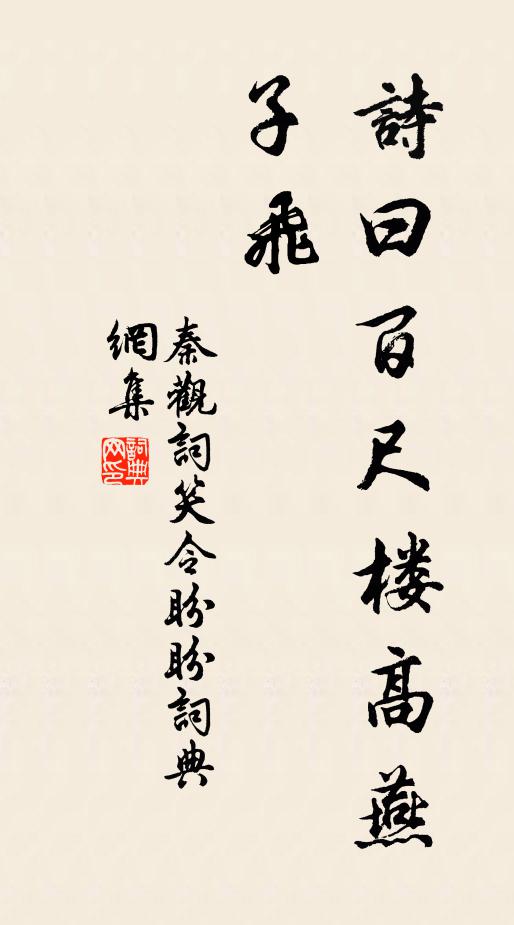 詩曰百尺楼高燕
子飛
秦觀詞笑令盼盼詞典
網集
詞典
网印